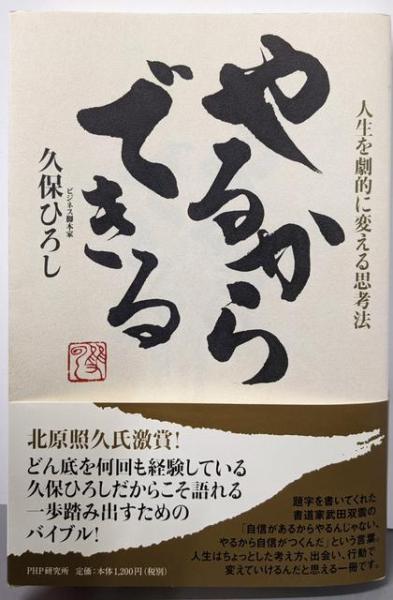 人生を劇的に変える思考法
やるから
できる
ビジネス脚本家
久保ひろし
北原照久氏激賞!
どん底を何回も経験している
久保ひろしだからこそ語れる
一歩踏み出すための
バイブル!
題字を書いてくれた
書道家武田双雲の
「自信があるからやるんじゃない、
やるから自信がつくんだ」という言葉。
人生はちょっとした考え方、出会い、行動で
変えていけるんだと思える一冊です。
PHP研究所 定価:本体1,200円(税別)